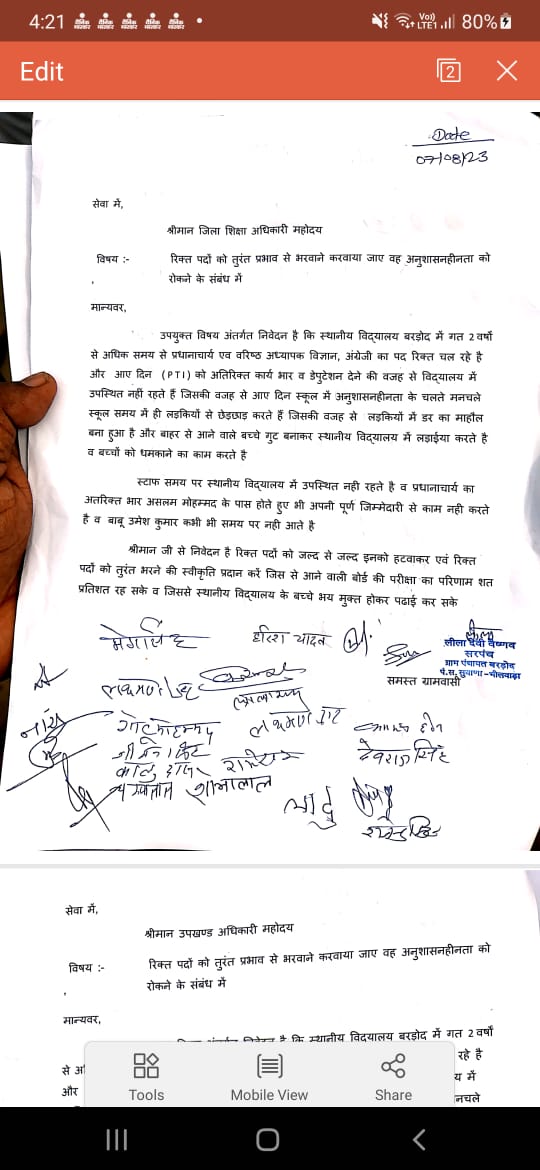 4:21
Vo)) LTE1 80%
Edit
2
Date
07/08/23
सेवा में,
श्रीमान जिला शिक्षा अधिकारी महोदय
विषय :- रिक्त पदों को तुरंत प्रभाव से भरवाने करवाया जाए वह अनुशासनहीनता को
, रोकने के संबंध में
मान्यवर,
उपयुक्त विषय अंतर्गत निवेदन है कि स्थानीय विद्यालय बरड़ोद में गत 2 वर्षो
से अधिक समय से प्रधानाचार्य एव वरिष्ठ अध्यापक विज्ञान, अंग्रेजी का पद रिक्त चल रहे है
और आए दिन (PTI) को अतिरिक्त कार्य भार व डेपुटेशन देने की वजह से विद्यालय में
उपस्थित नहीं रहते हैं जिसकी वजह से आए दिन स्कूल में अनुशासनहीनता के चलते मनचले
स्कूल समय में ही लड़कियों से छेड़छाड़ करते हैं जिसकी वजह से लड़कियों में डर का माहौल
बना हुआ है और बाहर से आने वाले बच्चे गुट बनाकर स्थानीय विद्यालय में लड़ाईया करते है
व बच्चों को धमकाने का काम करते है
स्टाफ समय पर स्थानीय विद्यालय में उपस्थित नही रहते है व प्रधानाचार्य का
अतरिक्त भार असलम मोहम्मद के पास होते हुए भी अपनी पूर्ण जिम्मेदारी से काम नही करते
है व बाबू उमेश कुमार कभी भी समय पर नही आते है
श्रीमान जी से निवेदन है रिक्त पदों को जल्द से जल्द इनको हटवाकर एवं रिक्त
पदों को तुरंत भरने की स्वीकृति प्रदान करें जिस से आने वाली बोर्ड की परीक्षा का परिणाम शत
प्रतिशत रह सके व जिससे स्थानीय विद्यालय के बच्चे भय मुक्त होकर पढाई कर सके
हरिश यादव
लीला देवी वैष्णव
सरपंच
ग्राम पंचायत बरड़ोद
पं.स. सुवाणा-भीलवाड़ा
समस्त ग्रामवासी
शोभालाल
सेवा में,
श्रीमान उपखण्ड अधिकारी महोदय
विषय :- रिक्त पदों को तुरंत प्रभाव से भरवाने करवाया जाए वह अनुशासनहीनता को
, रोकने के संबंध में
मान्यवर,
है कि स्थानीय विदयालय बरड़ोद में गत 2 वर्षों
रहे है
और
नचले
Tools
Mobile View
Share